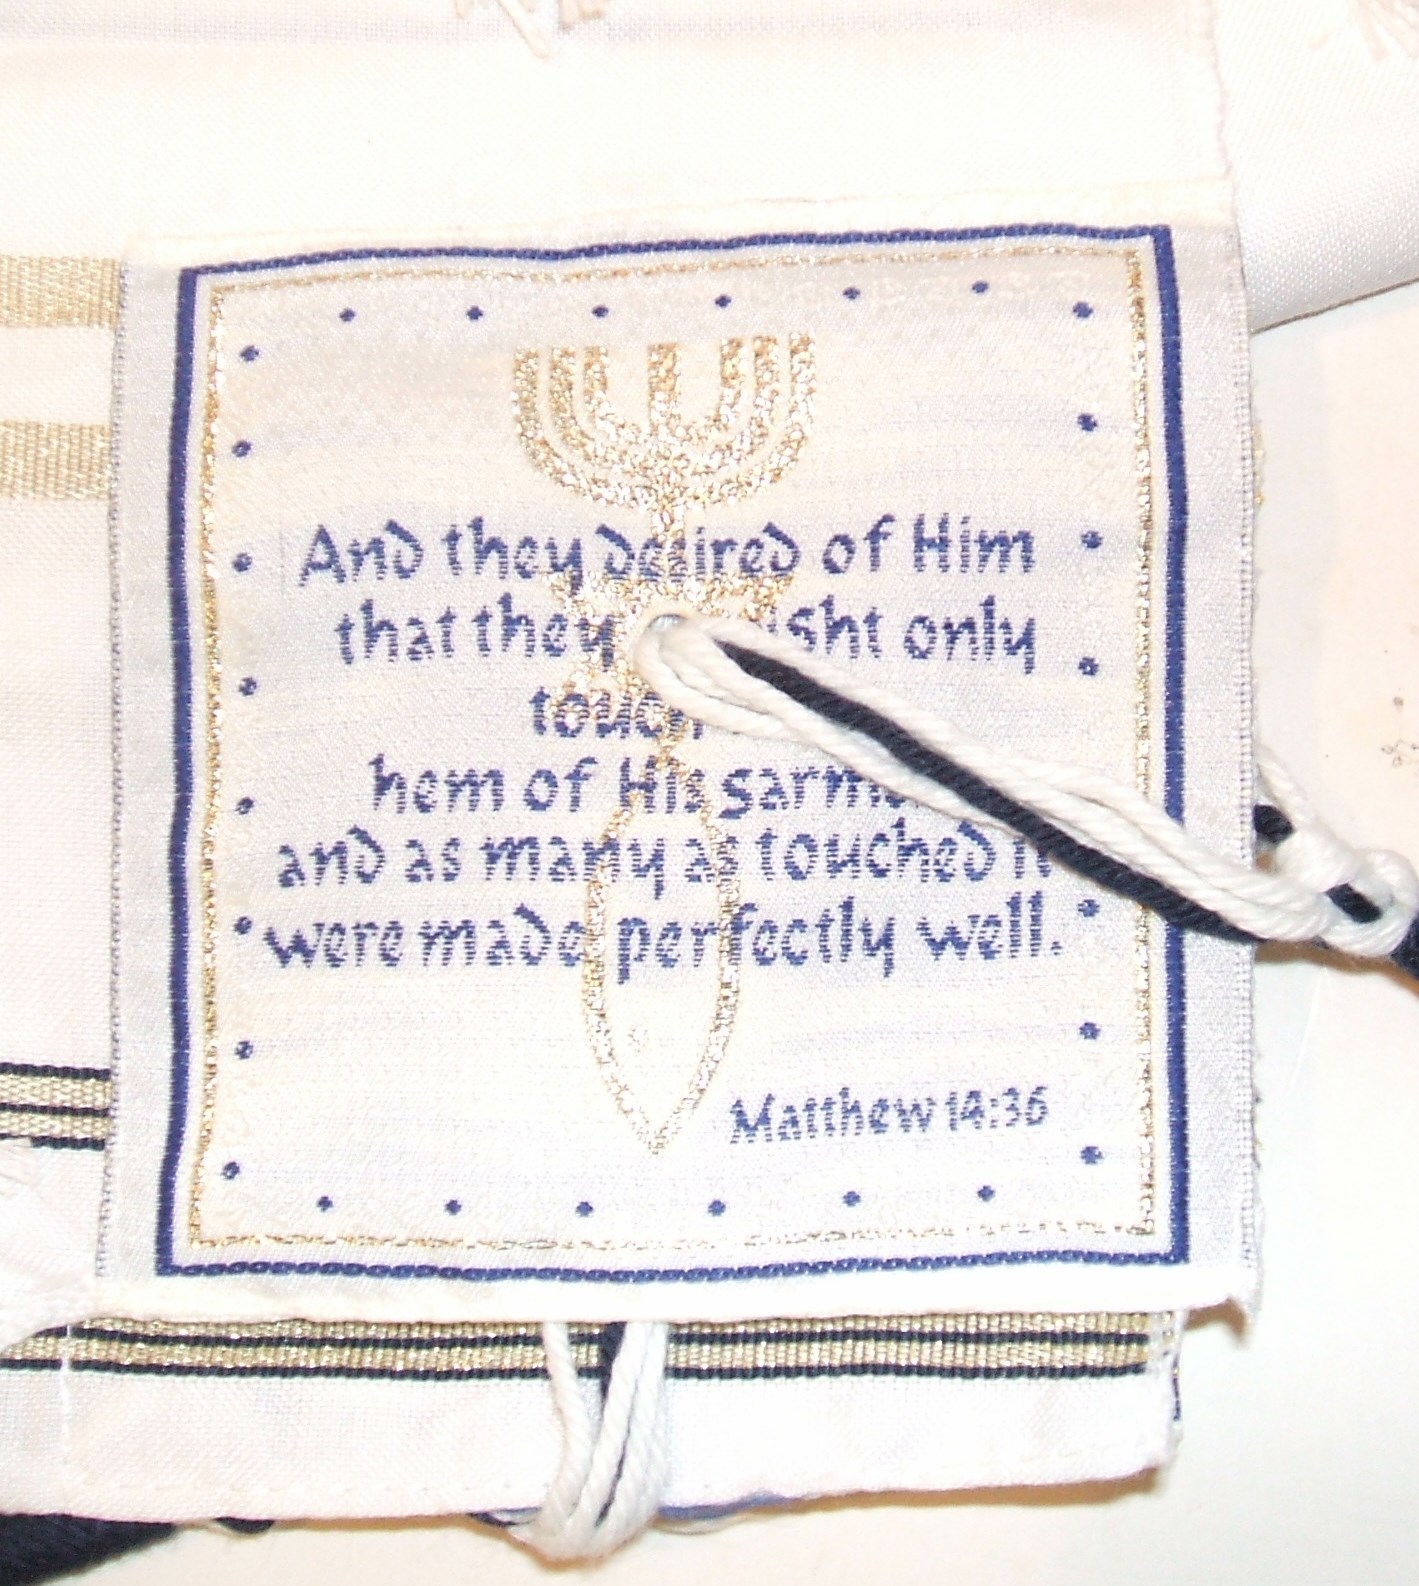 And they desired of Him
that they might only
touch
hem of His garment
and as many as touched it
were made perfectly well.
Matthew 14:36